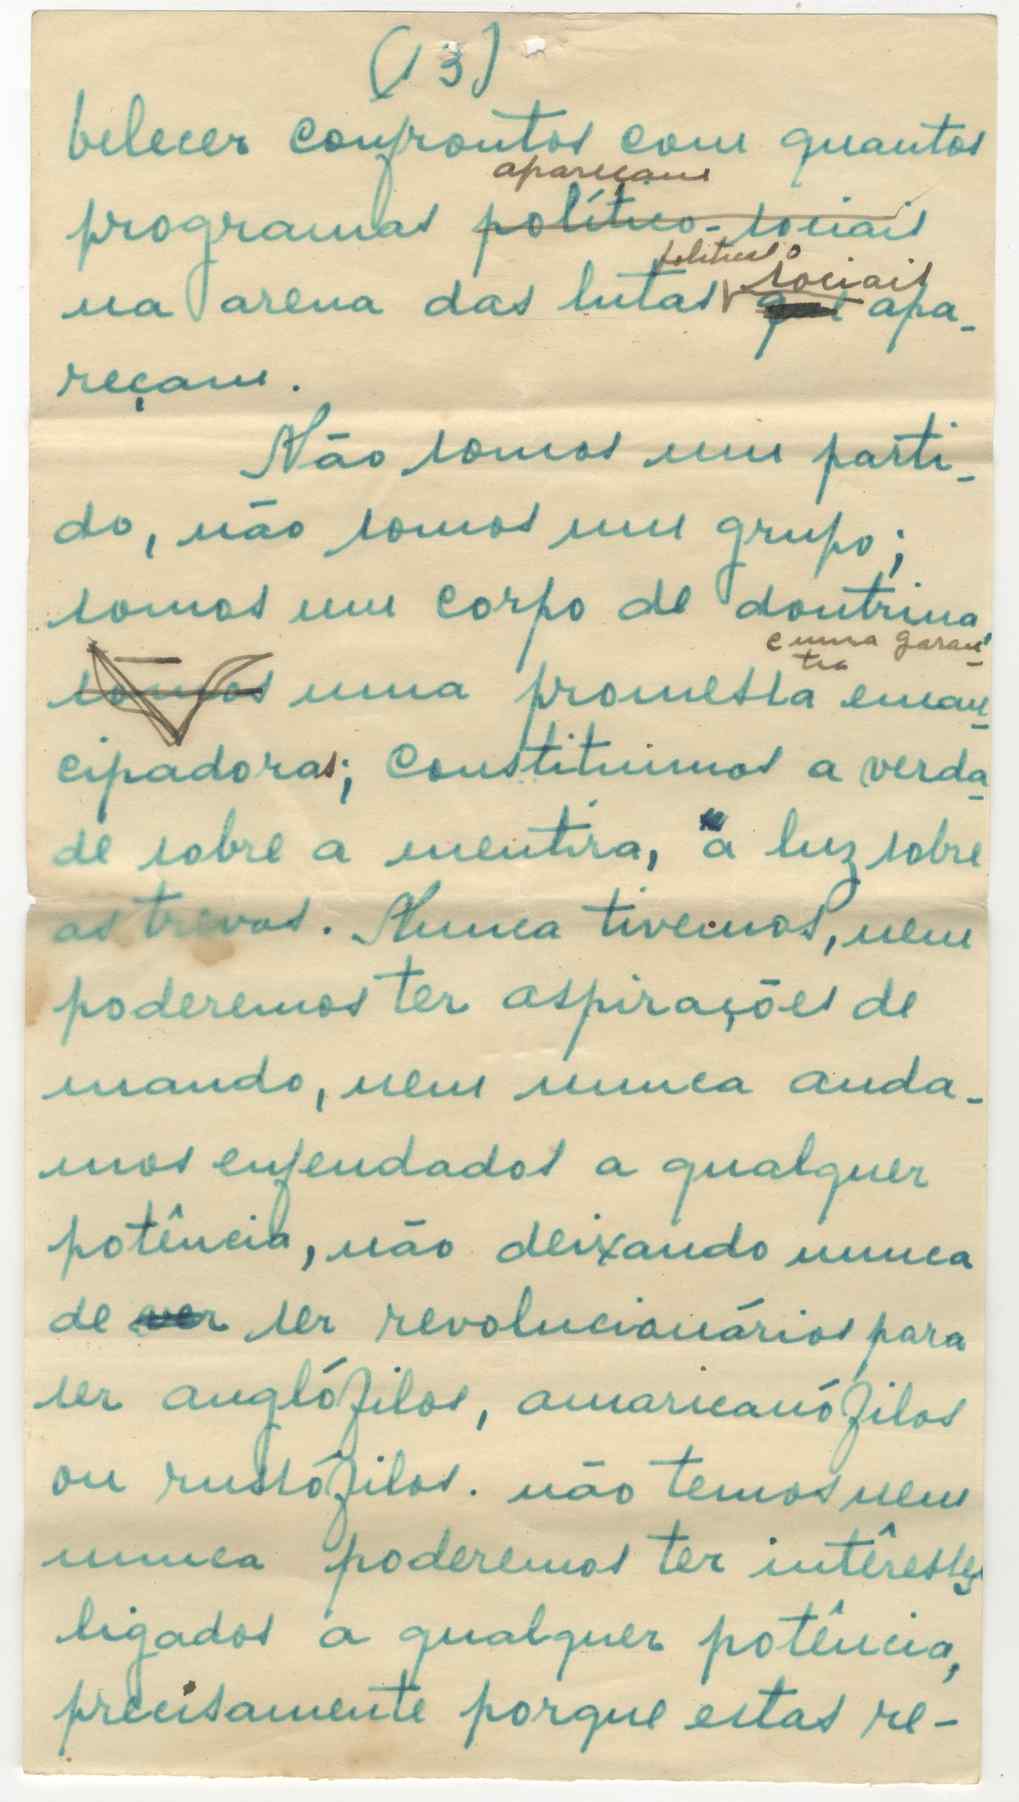 (13)
belecer confrontos com quantos
apareçam
programas político-sociais
politico
sociais
na arena das lutas apa-
reçam.
Não somos um parti-
do, não somos um grupo;
somos um corpo de doutrina,
e uma garan-
tia
somos uma promessa eman-
cipadoras; constituimos a verda-
de sobre a mentira, a luz sobre
as trevas. Nunca tivemos, nem
poderemos ter aspirações de
mando, nem nunca anda-
mos enfeudados a qualquer
potência, não deixando nunca
de ver ser revolucionários para
ser anglófilos, amaricanófilos
ou russófilos. não temos nem
nunca poderemos ter intêresses
ligados a qualquer potência,
precisamente porque estas re-